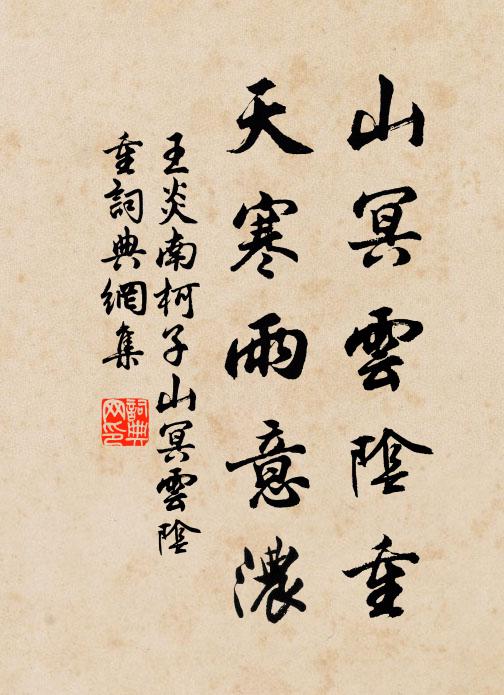 山冥雲陰重
天寒雨意濃
王炎南柯子山冥雲陰
重詞典網集
詞典网印